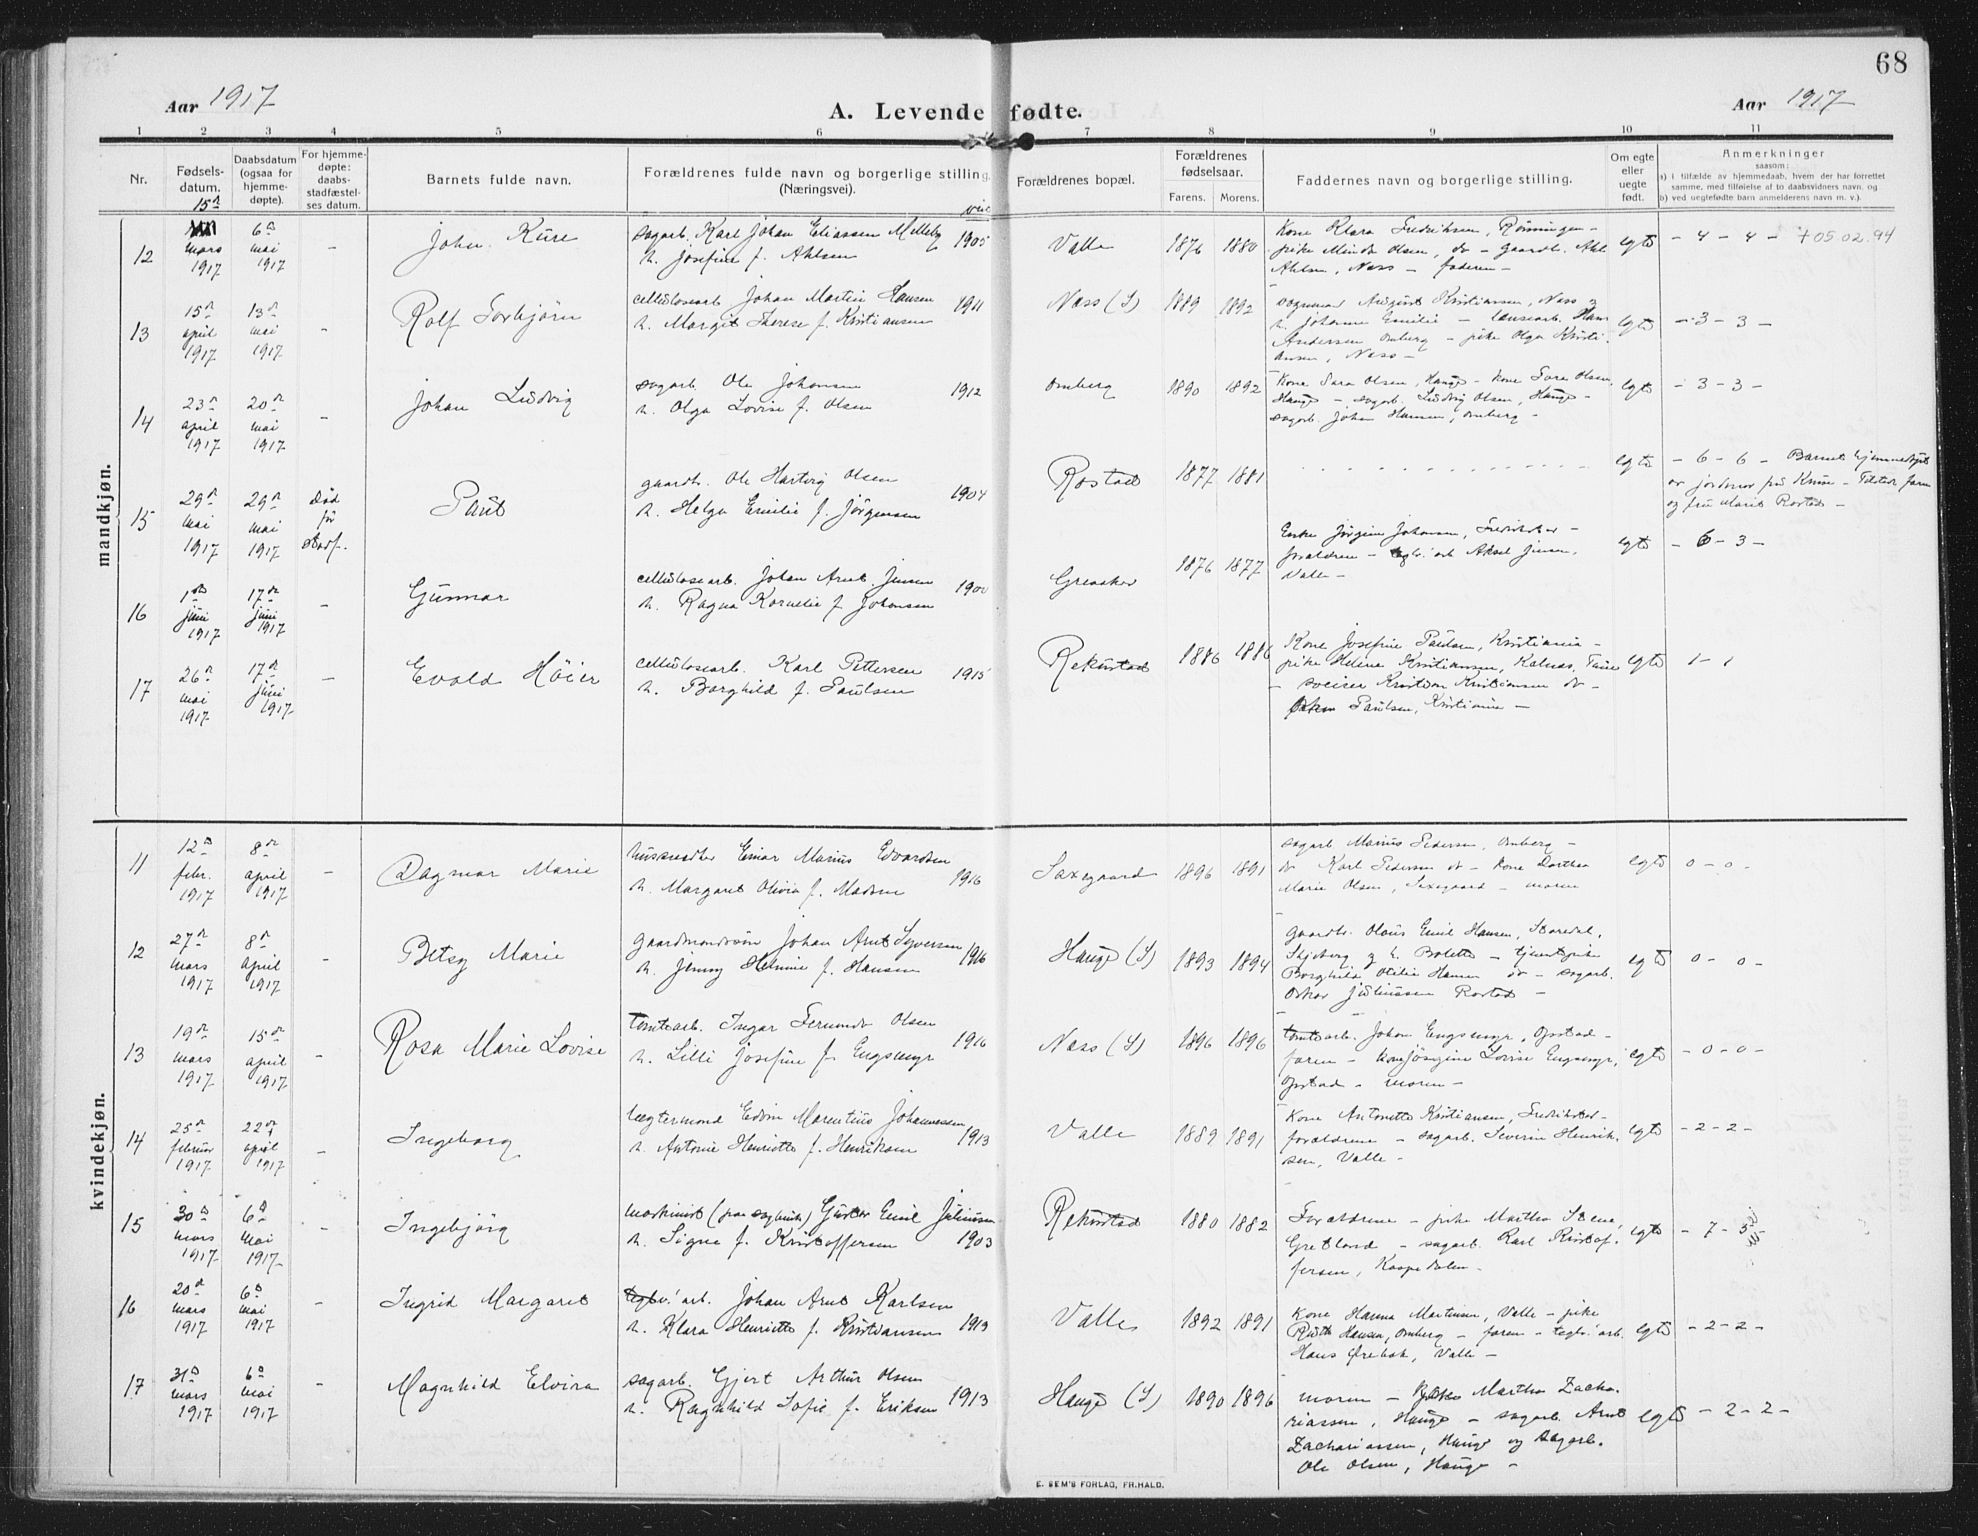 68
Aar 1917
A. Levende fødte.
Aar 1917
1 2 3 4 5 6 7 8 9 10 11
Nr.
Fødsels-
datum.
Daabsdatum
(ogsaa for
hjemme-
døpte).
For hjemme-
døpte:
daabs-
stadfæstel-
ses datum.
Barnets fulde navn.
Forældrenes fulde navn og borgerlige stilling
(Næringsvei).
Forældrenes bopæl.
Forældrenes
fødselsaar.
Farens. Morens.
Faddernes navn og borgerlige stilling.
Om egte
eller
uegte
født.
Anmerkninger
saasom:
a) i tilfælde av hjemmedaab, hvem der har forrettet
samme, med tilføielse af to daabsvidners navn, og
b) ved uegtefødte barn anmelderens navn m. v.).
mandkjøn.
12
15de
mars
1917
6te
mai
1917
-
John Kure
sagarb. Karl Johan Eliassen Melleby
h. Josefine f. Ahlsen
viet
1905
Valle
1876 1880
Kone Klara Fredriksen, Rønningen -
pike Minda Olsen, do - gaardb.
Ahlsen, Næss - faderen -
egte
- 4 - 4 - + 05.02.94
13
15de
april
1917
13de
mai
1917
-
Rolf Torbjørn
cellulosearb. Johan Martin Hansen
h. Margit Therese f. Kristiansen
1911
Næss (S)
1889 1892
August Kristiansen, Næss og
h. Johanne Emilie -
Andersen Omberg - pike Olga Kristi-
ansen, Næss -
egte
- 3 - 3 -
14
23de
april
1917
20de
mai
1917
-
Johan Ludvig
sagarb. Ole Johansen
h. Olga Lovise f. Olsen
1912
Omberg
1890 1892
Kone Sara Olsen, Hauge - kone Tora Olsen,
Hauge - sagarb. Ludvig Olsen, Hauge -
sagarb. Johan Hansen, Omberg -
egte
- 3 - 3 -
15
29de
mai
1917
29de
mai
1917
død
før
stadf.
Paul
gaardb. Ole Hartvig Olsen
h. Helga Emilie f. Jørgensen
1904
Rostad
1877 1881
egte
- 6 - 6 - Barnet hjemmedøpt
av jordmor
og fru Marie Rostad -
16
1ste
juni
1917
17de
juni
1917
-
Gunnar
cellulosearb. Johan Arnt Jensen
h. Ragna Kornelie f. Johansen
1900
Greaaker
1876 1877
Enke Jørgine Johansen,
forældrene - teglv.arb. Aksel Jensen,
Valle -
egte
- 6 - 3 -
17
26de
mai
1917
17de
juni
1917
-
Evald Høier
cellulosearb. Karl Pettersen
h. Borghild f. Paulsen
1915
Rekustad
1886 1886
Kone Josefine Paulsen, Kristiania -
pike Helene Kristiansen, Kalnæs, Tune
- sveiser Kristian Kristiansen do -
Paulsen, Kristiania -
egte
1 - 1
kvindekjøn.
11
12te
febr.
1917
8de
april
1917
-
Dagmar Marie
Einar Marius Edvardsen
h. Margaret Olivia f. Madsen
1916
Saxegaard
1896 1891
sagarb. Marius Pedersen, Omberg -
do Karl Pedersen do - kone Dorthea
Marie Olsen, Saxegaard - moren
egte
0 - 0 -
12
27de
mars
1917
8de
april
1917
-
Betsy Marie
gaardmandssøn Johan Arnt Syversen
h. Jenny Helmine f. Hansen
1916
Hauge (S)
1893 1894
gaardb. Olaus Emil Hansen, Storedal,
Skjeberg og h. Bolette - tjenestpike
Borghild Otilie Hansen do - sagarb.
Oskar Juliussen Rostad -
egte
0 - 0 -
13
19de
mars
1917
15de
april
1917
-
Rosa Marie Lovise
tomtearb. Ingar Fernando Olsen
h. Lilli Josefine f. Engsmyr
1916
Næss (S)
1896 1896
tomtearb. Johan Engsmyr, Opstad -
faren - kone Jørgine Lovise Engsmyr,
Opstad - moren -
egte
- 0 - 0 -
14
25de
februar
1917
22de
april
1917
-
Ingeborg
Edvin Marentius Johannessen
h. Antonie Henriette f. Henriksen
1913
Valle
1889 1891
Kone Antonette Kristiansen,
forældrene - sagarb. Severin Henrik-
sen, Valle -
egte
- 2 - 2 -
15
30te
mars
1917
6te
mai
1917
-
Ingebjørg
maskinist (paa sagbruk) Gustav Emil Juliussen
h. Signe f. Kristoffersen
1903
Rekustad
1880 1882
Forældrene - pike Martha Stene,
Gretland - sagarb. Karl Kristof-
fersen, Kaspedalen -
egte
- 7 - 5 -
16
20de
mars
1917
6te
mai
1917
-
Ingrid Margaret
teglv. arb. Johan Arnt Karlsen
h. Klara Henriette f. Kristiansen
1913
Valle
1892 1891
Kone Hanna Martinsen, Valle - pike
Ruth Hansen, Omberg - faren - teglv. arb.
Hans Ørebæk, Valle -
egte
- 2 - 2 -
17
31te
mars
1917
6te
mai
1917
-
Magnhild Elvira
sagarb. Gjert Arthur Olsen
h. Ragnhild Sofie f. Eriksen
1913
Hauge (S)
1890 1896
moren - pike Martha Zacha-
riassen, Hauge - sagarb. Arnt
Zachariassen, Hauge og sagarb.
Ole Olsen, Hauge -
egte
- 2 - 2 -
E. SEM'S FORLAG, FR.HALD.